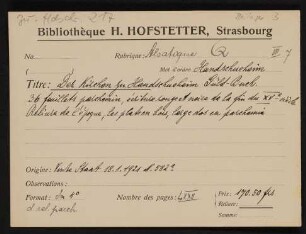 Bibliothèque H. HOFSTETTER, Strasbourg
No. Rubrique: Alsatique Q III 7
Mot d'ordre Handschuheim
Titre: Der Kirchen zu Handschuheim Gült-Buch.
36 feuillets parchemin, écriture rouge et noire de la fin du XVe siècle
Reliure de l'époque, les plats en bois, large dos en parchemin
Origine: Vente Staat 18.1.1921 N. 582a
Observations:
Format: in 4° Nombre des pages: Prix: 170.50 frs
d rel parch Reliure:
Somme: